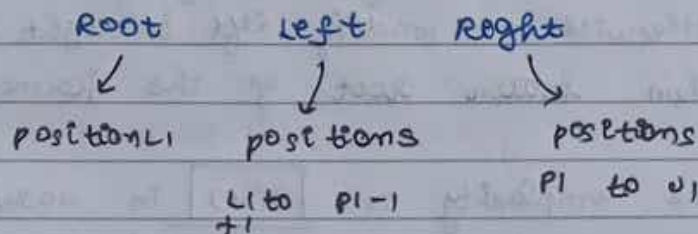 Root Left Roght
positionL1 positions positions
L1 to P1-1 P1 to U1
+1